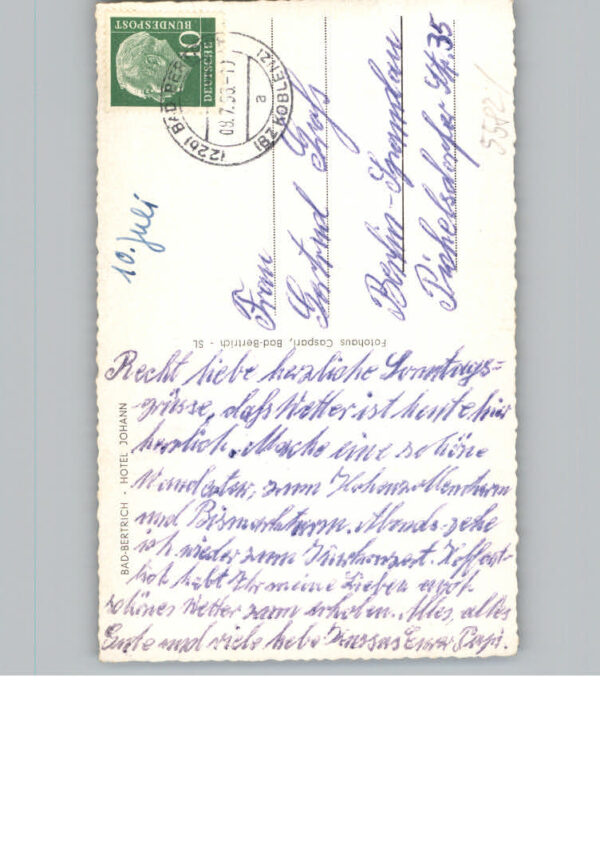 DEUTSCHE
BUNDESPOST
10
(22b) BAD BERTRICH
09.7.60.-1
a
(BZ KOBLENZ)
10. Juli
Frau
Gertrud
Berlin-Spandau
Pichelsdorfer Str. 35
Fotohaus Caspari, Bad-Bertrich - SL
BAD-BERTRICH • HOTEL JOHANN
Recht liebe herzliche Sonntags=
grüsse, daß Wetter ist heute hier
herrlich. Mache eine schöne
zum Hohenzollernturm
und Bismarkturm. Abends gehe
ich wieder zum Kurkonzert. Hoffent-
lich habt Ihr meine Lieben auch
schönes Wetter zum erholen. Alles, alles
Gute und viele liebe Eurer Papi.